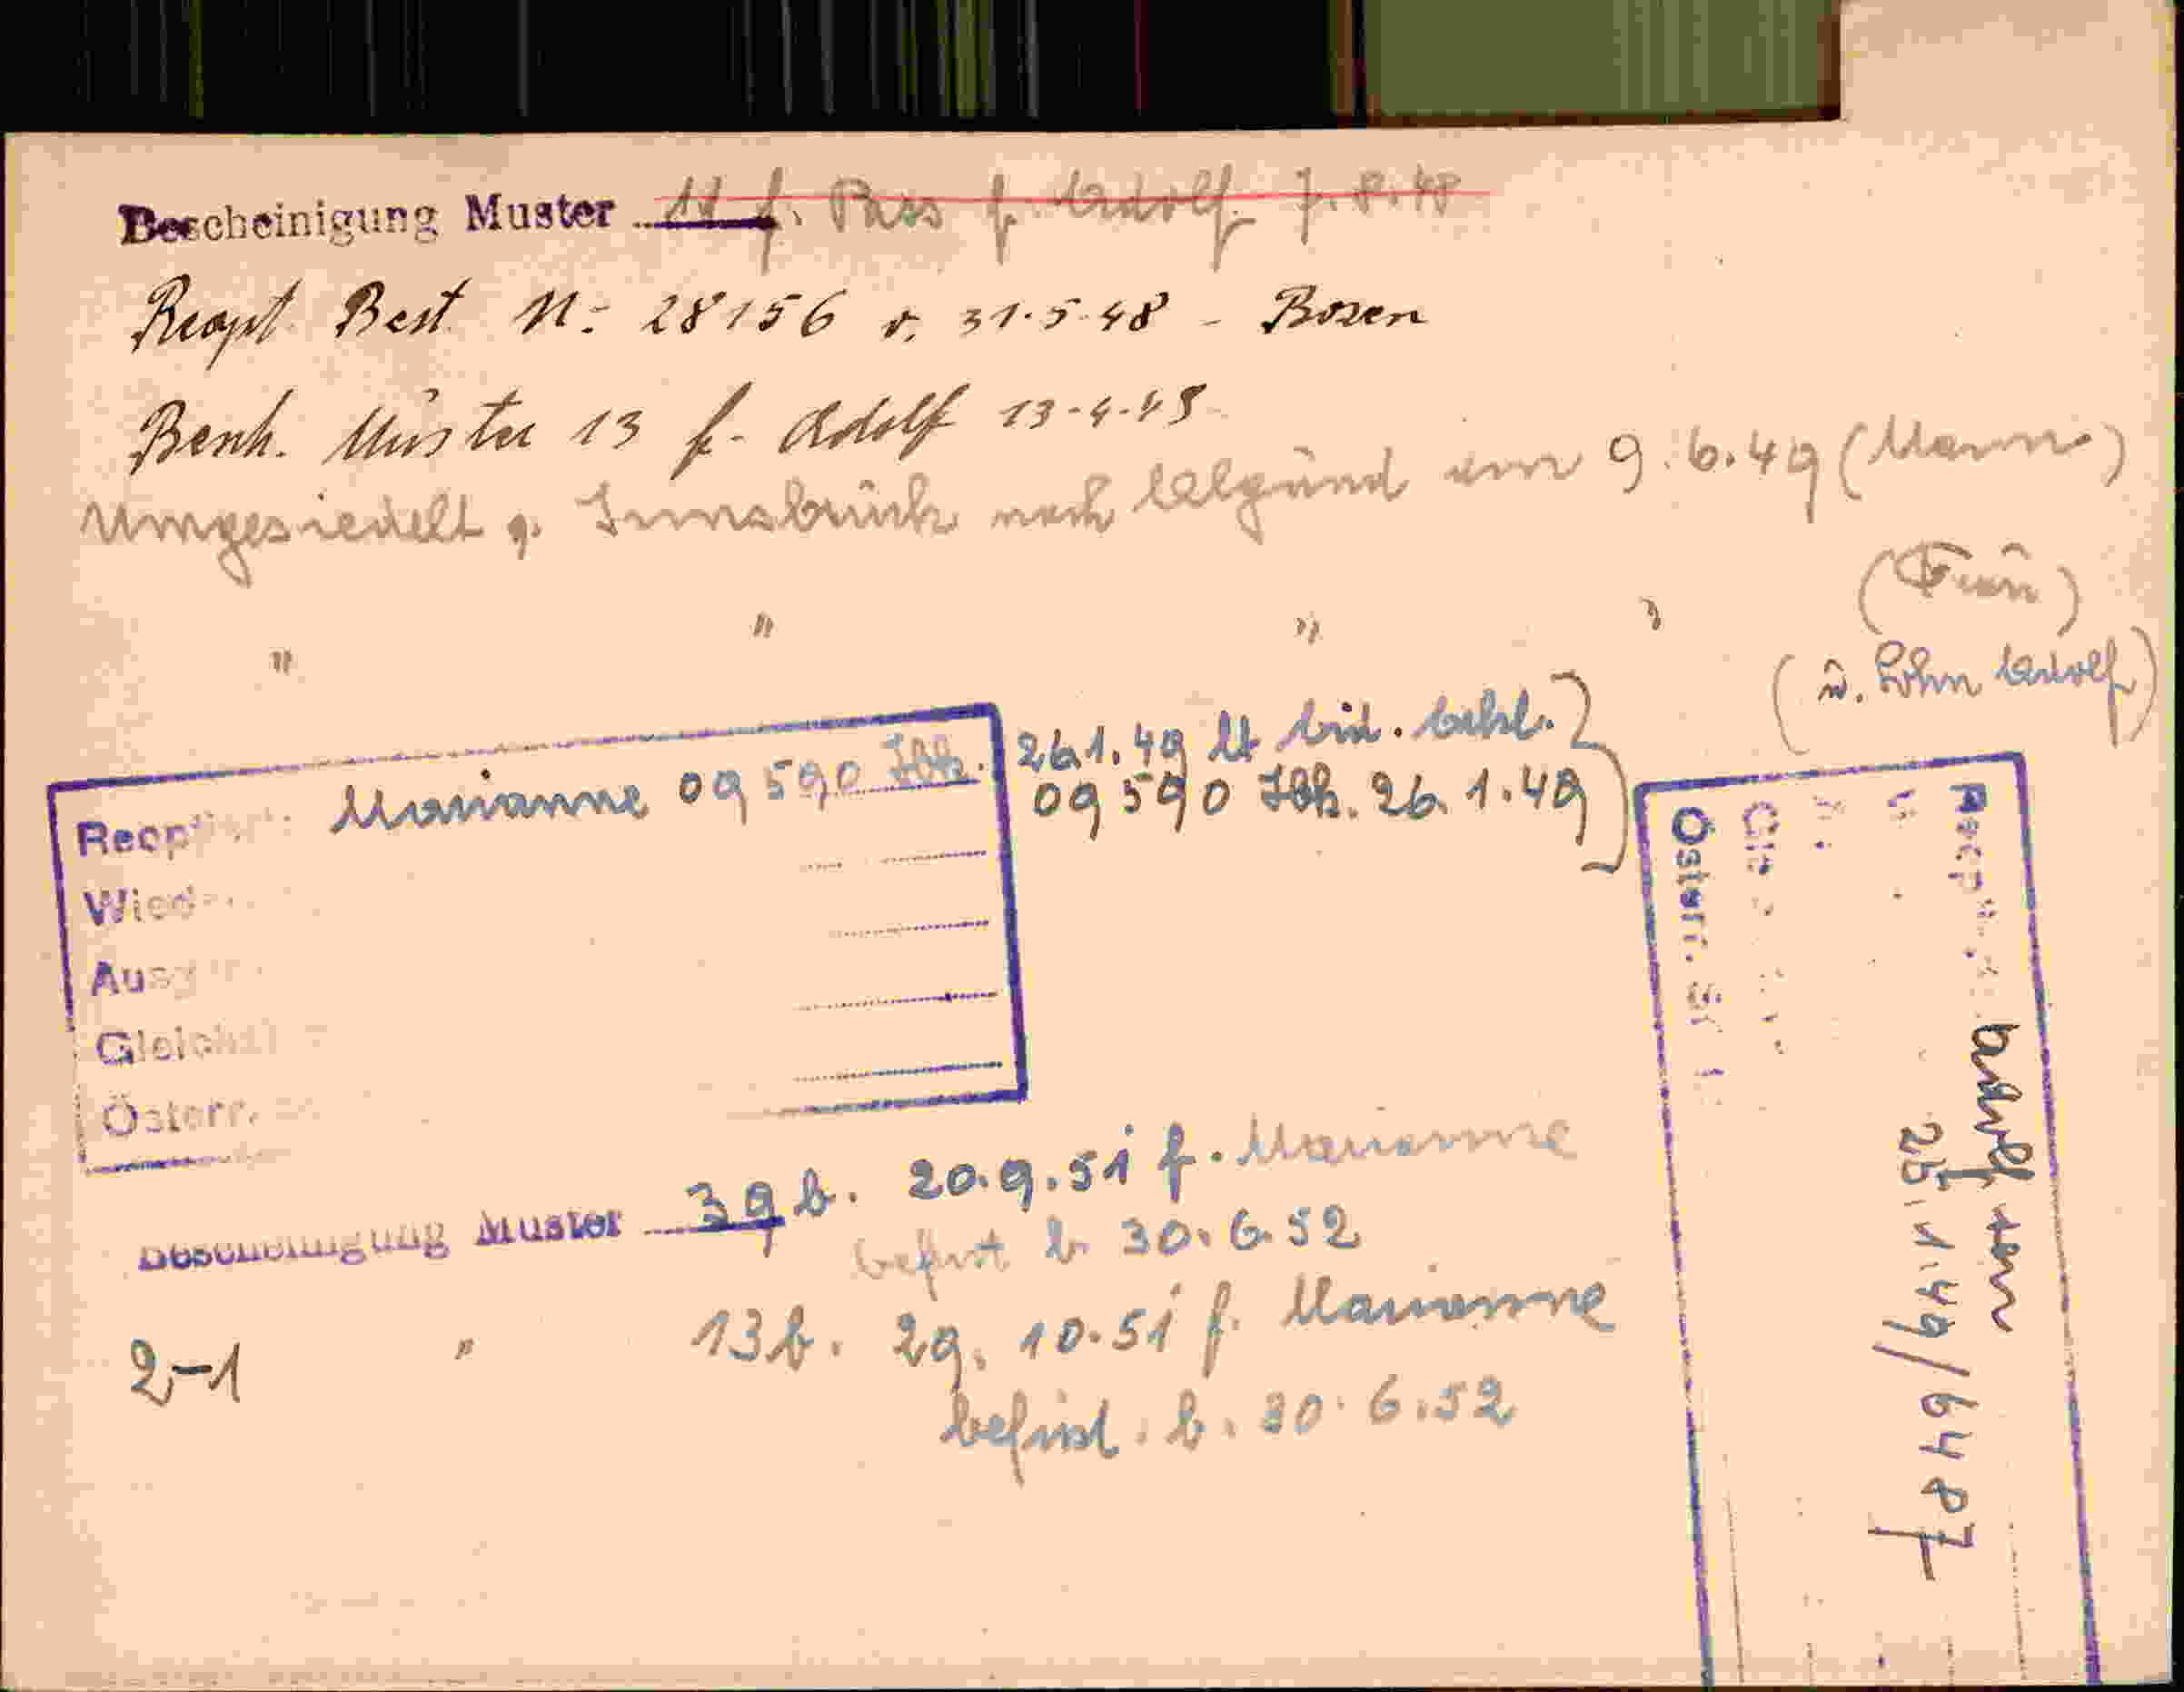 Bescheinigung Muster 11 f. Pass f. Adolf 7.8.48
Reopt Best N: 28156 v. 31.5.48 - Bozen
Besch. Muster 13 f. Adolf 13-4-48
Umgesiedelt g. Innsbruck nach Algund am 9.6.49 (Mann)
" " " " (Frau)
(u. Sohn Adolf)
26.1.49 lt
Marianne 09590 Ibk. 09590 Ibk. 26.1.49
Reopt
Wied
Aus
Gleich
Österr.
Reopt Adolf
25.1.49/6487
Österr. St
Bescheinigung Muster 39 b. 20.9.51 f. Marianne
befrist b 30.6.52
2-1 " 13b. 29.10.51 f. Marianne
befrist. b. 30.6.52